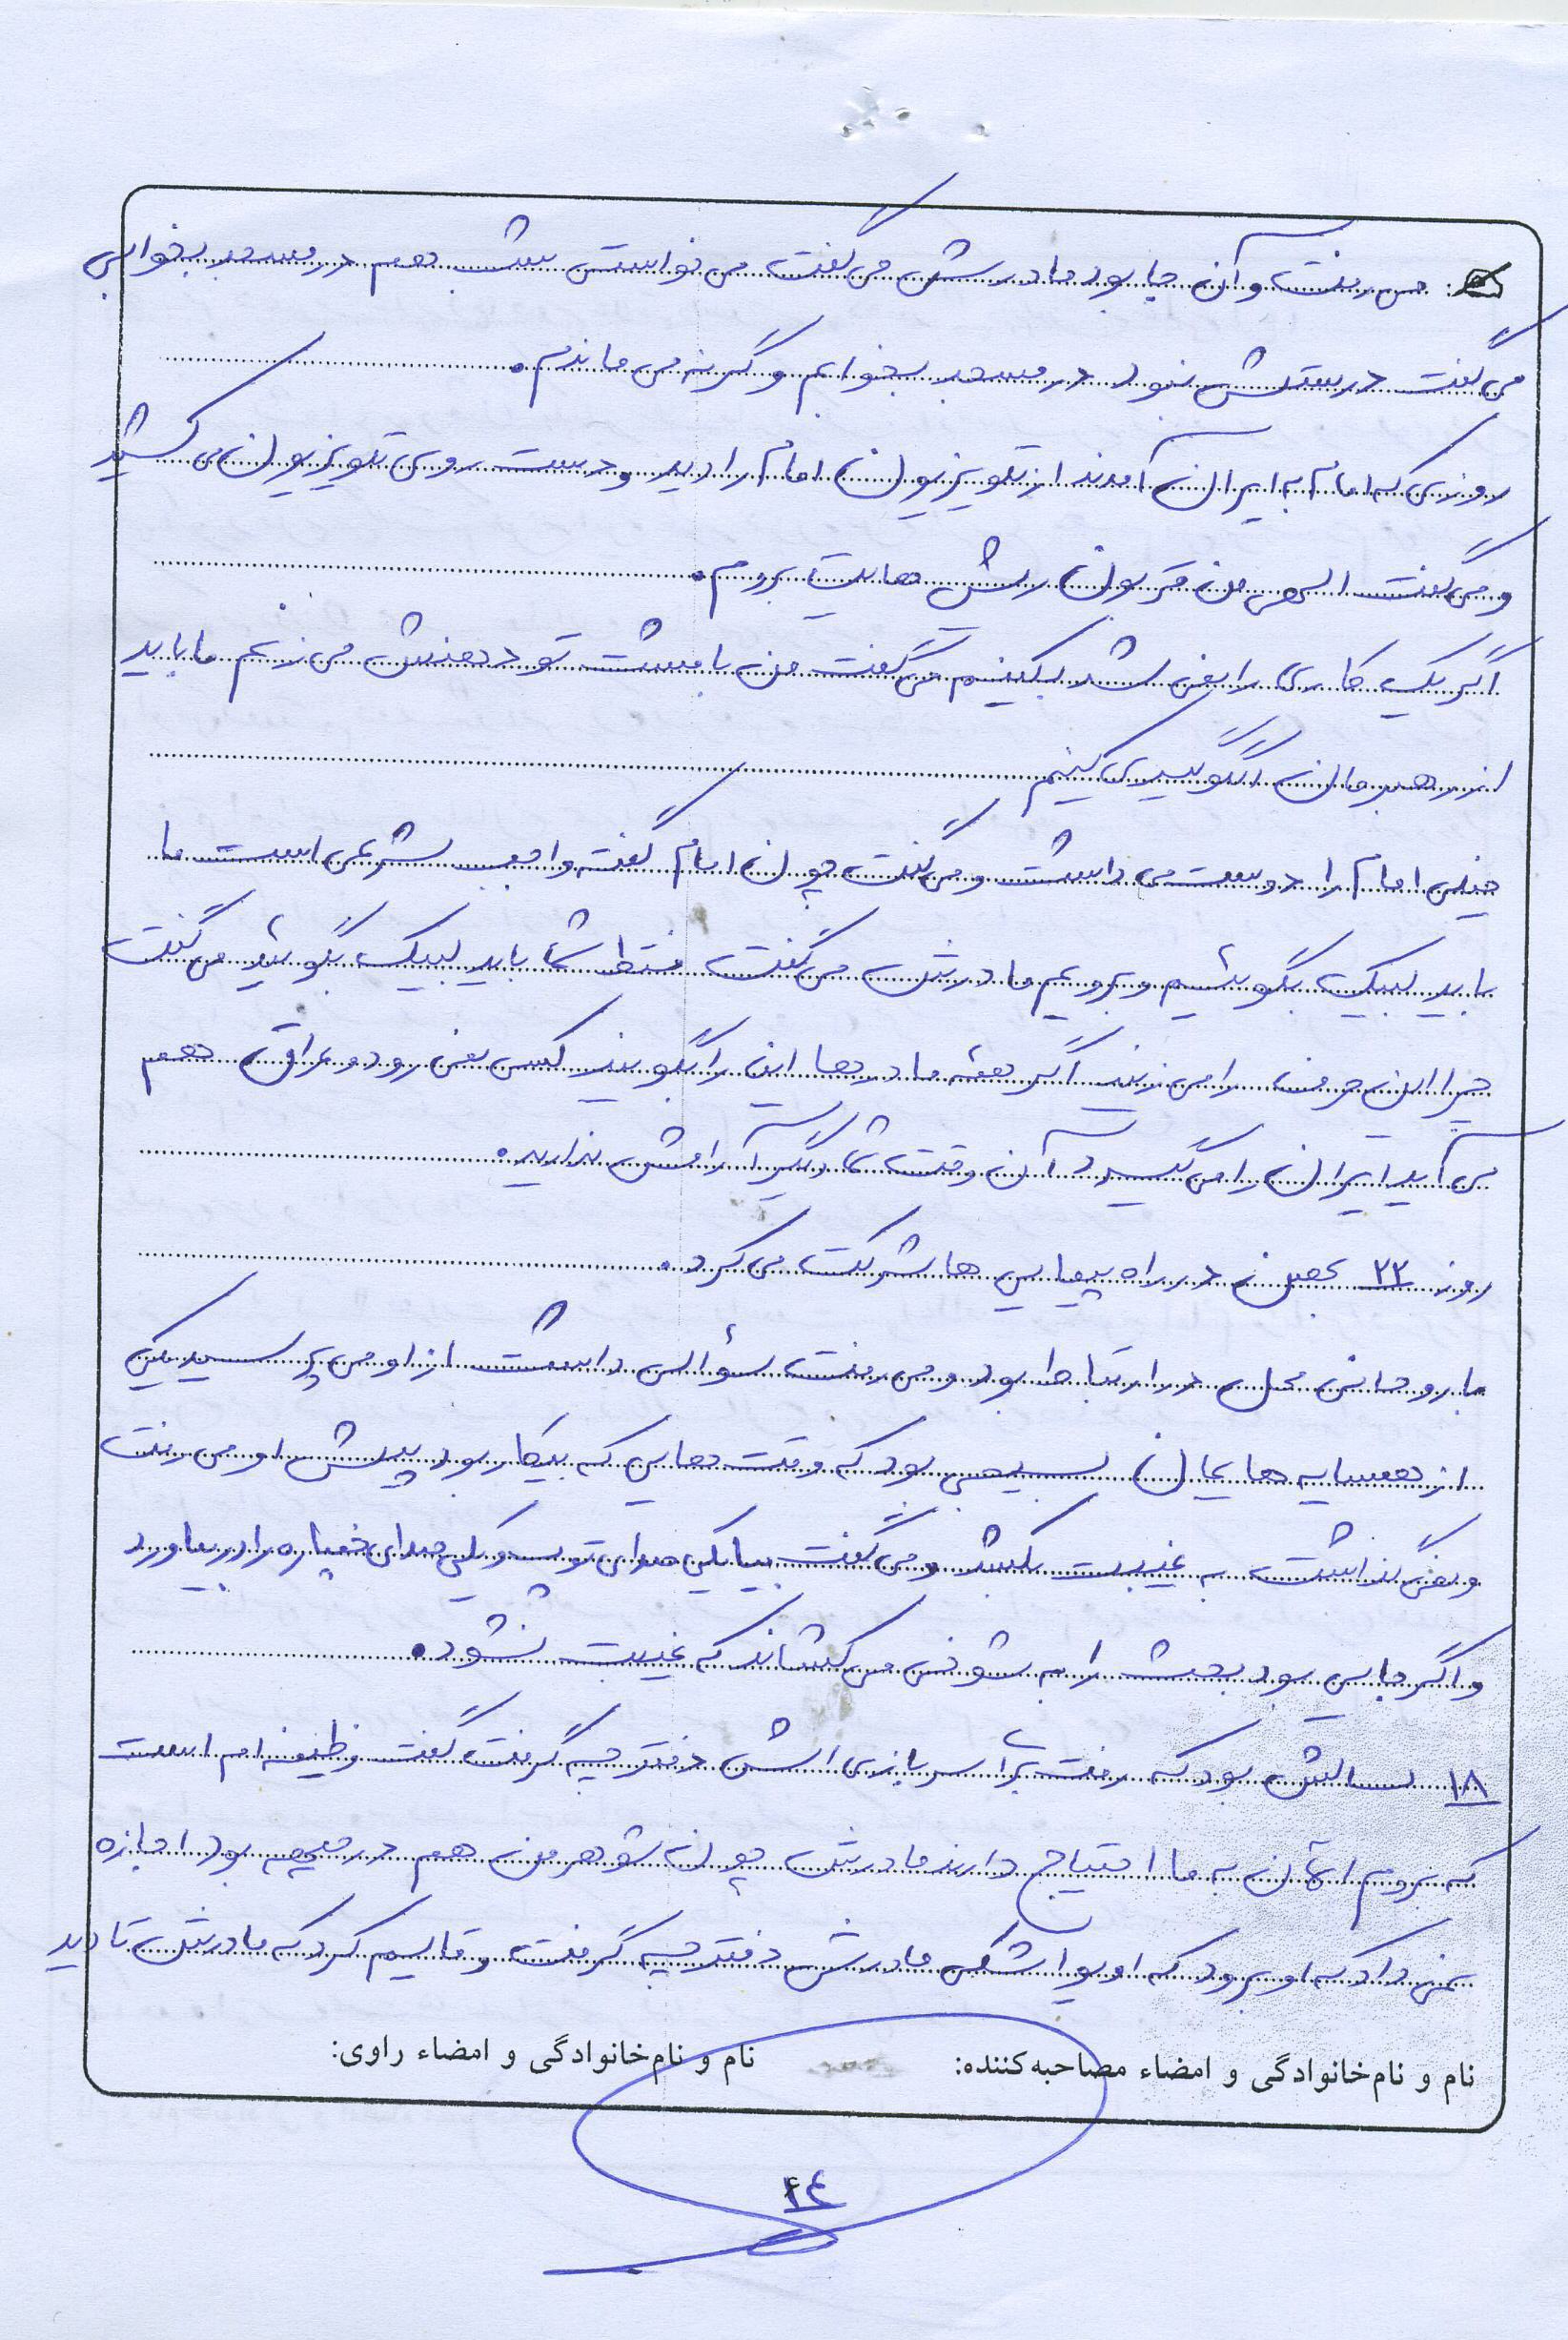 می رفت و آن جا بود مادرش می گفت می خواستی شب هم در مسجد بخوابی
می گفت درستش نبود در مسجد بخوابم وگرنه می ماندم.
روزی که امام به ایران آمدند از تلویزیون امام را دید و دست روی تلویزیون می کشید
و می گفت الهی من قربون ریش هایت بروم.
اگر یک کاری را نمی شد بکنیم می گفت من با مشت تو دهنش می زنم ما باید
از رهبرمان الگوگیری کنیم
خیلی امام را دوست می داشت و می گفت چون امام گفته واجب شرعی است ما
باید لبیک بگوئیم و برویم مادرش می گفت فقط شما باید لبیک بگوئید می گفت
چرا این حرف را می زنید اگر همه مادرها این را بگویند کسی نمی رود و عراق هم
می آید ایران را می گیرد و آن وقت شما دیگر آرامش ندارید.
روز ۲۲ بهمن در راه پیمایی ها شرکت می کرد.
با روحانی محل در ارتباط بود و می رفت سؤالی داشت از او می پرسید یکی
از همسایه هایمان بسیجی بود که وقت هایی که بیکار بود پیش او می رفت
و نمی گذاشت به غیبت بکشد و می گفت بیا یکی صدای توپ و یکی صدای خمپاره را در بیاورد
و اگر جایی بود بحث را به شوخی می کشاند که غیبت نشود.
۱۸ سالش بود که رفت برای سربازی اش دفترچه گرفت گفت وظیفه ام است
که بروم الان به ما احتیاج دارند مادرش چون شوهر من هم در جبهه بود اجازه
نمی داد که او برود که او یواشکی مادرش دفترچه گرفت و قایم کرد که مادرش تا دید
نام و نام‌خانوادگی و امضاء مصاحبه‌کننده: نام و نام‌خانوادگی و امضاء راوی: